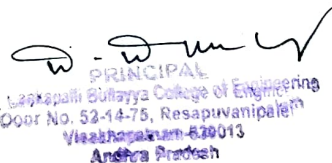 PRINCIPAL
Lankapalli Bullayya College of Engineering
Door No. 52-14-75, Resapuvanipalem
Visakhapatnam-530013
Andhra Pradesh